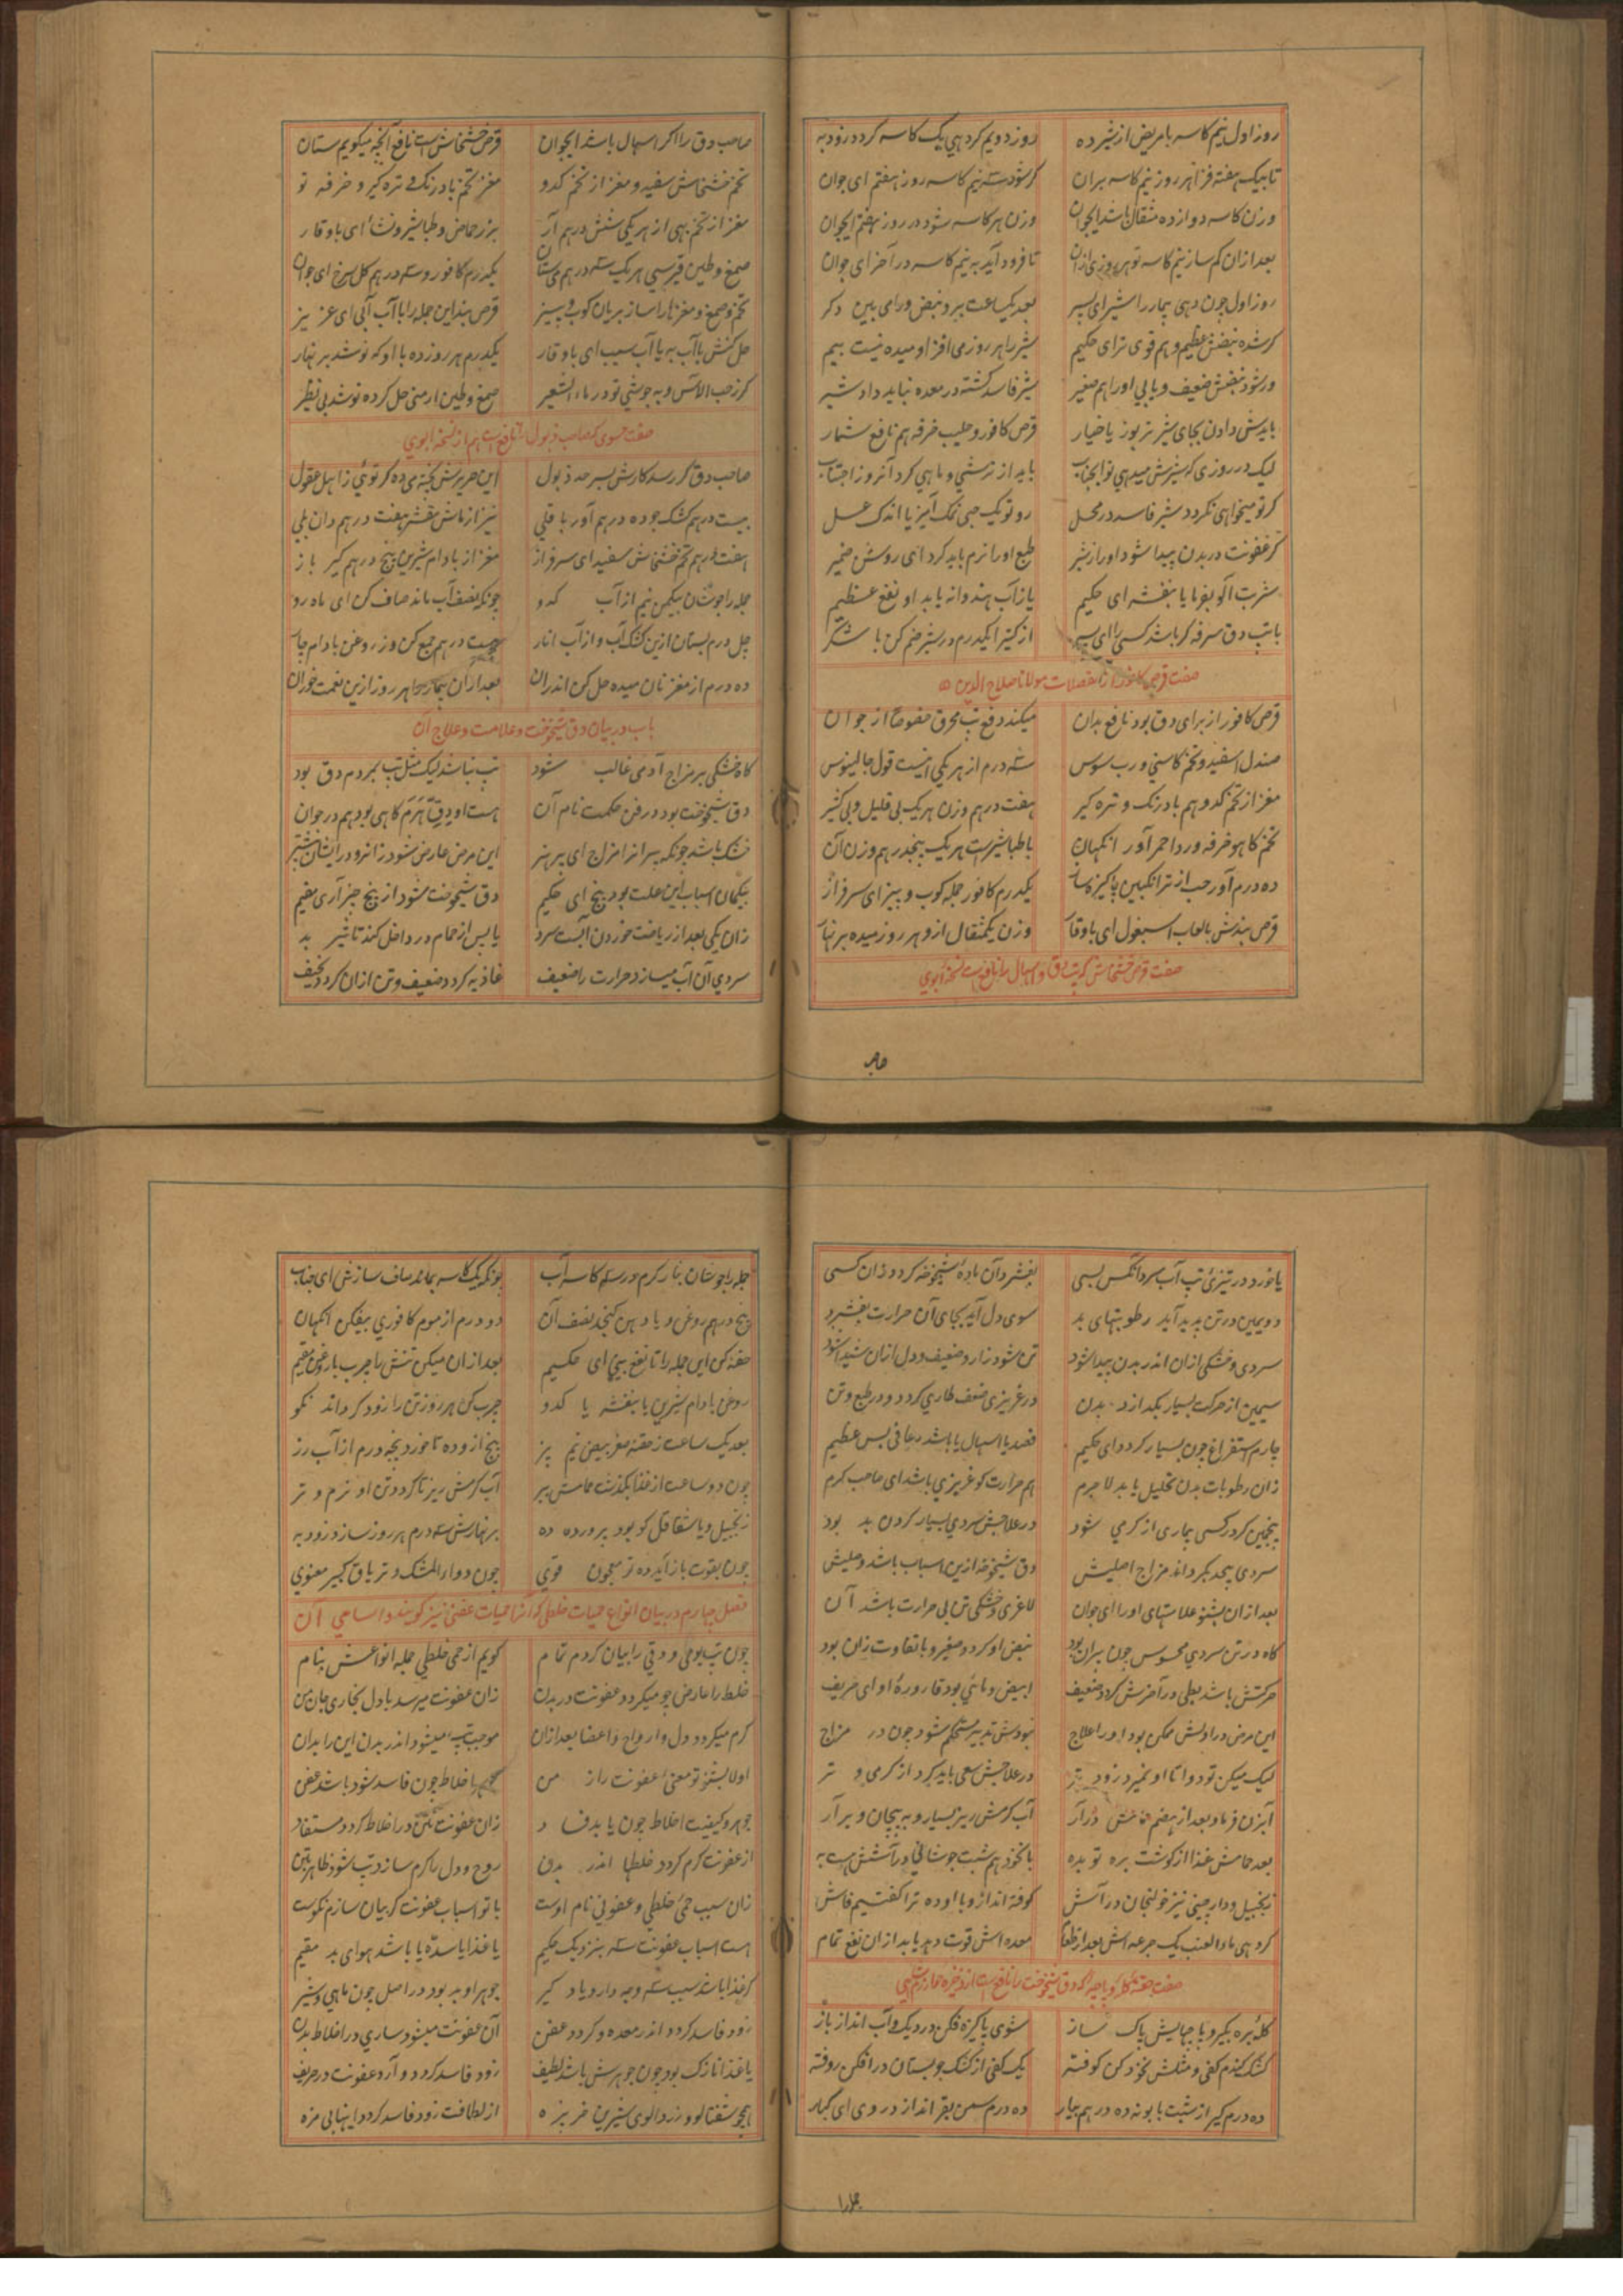 روز اول نیم کاسه با مریض از شیر ده روز دویم کرد هی یک کاسه کردد زود به
تا بیک هفته فزا هر روز نیم کاسه بران کر شود سه نیم کاسه روز هفتم ای جوان
وزن کاسه دوازده مثقال باشد ایجوان وزن هر کاسه شود در روز هفتم ایجوان
بعد ازان کم ساز نیم کاسه تو هر روزی ازان تا فرود آید به نیم کاسه در آخر ای جوان
روز اول چون دهی بیمار را شیر ای پسر بعد یکساعت برو نبض ورا می بین دکر
کر شده نبضش عظیم و هم قوی تر ای حکیم شیر را هر روز می افزا و میده نیست بیم
ور شود نبضش ضعیف و یابی او را هم صغیر شیر فاسد کشته در معده نباید داد شیر
بایدش دادن بجای شیر تربوز یا خیار قرص کافور و حلیب خرفه هم نافع شمار
لیک در روزی که شیرش میدهی تو ایجناب باید از ترشی و ماهی کرد آنروز اجتناب
کر تو میخواهی نکردد شیر فاسد در محل رو تو یک حبی نمک آمیز یا اندک عسل
کر عفونت در بدن پیدا شود او را ز شیر طبع او را نرم باید کرد ای روشن ضمیر
شربت آلو بفرما یا بنفشه ای حکیم یا ز آب هندوانه یابد او نفع عظیم
با تب دق سرفه کر باشد کسی را ای پسر از کتیرا یکدرم در شیر ضم کن با شکر
صفت قرص کافور از تفضلات مولانا صلاح الدین
قرص کافور از برای دق بود نافع بدان میکند دفع تب محرق خصوصا از جوان
صندل اسفید و تخم کاسنی و رب سوس سه درم از هر یکی اینست قول جالینوس
مغز از تخم کدو هم بادرنک و تره کیر هفت درهم وزن هر یک بی قلیل و بی کثیر
تخم کاهو خرفه و ورد احمر آور انکهان با طباشیرست هر یک پنجدرهم وزن آن
ده درم آور حب از ترانکبین پاکیزه ساز یکدرم کافور جمله کوب و بیز ای سرفراز
قرص بندش با لعاب اسبغول ای باوقار وزن یکمثقال ازو هر روز میده بر نهار
صفت قرص خشخاش که تب دق و اسهال را نافع است نسخه ابوی
صاحب دق را اکر اسهال باشد ایجوان قرص خشخاش است نافع آنچه میکویم ستان
تخم خشخاش سفید و مغز از تخم کدو مغز تخم بادرنک و تره کیر و خرفه تو
مغز از تخم بهی از هر یکی شش درهم آر بزر حماض و طباشیر و نشا ای باوقار
صمغ و طین قبرسی هر یک سه درهم می ستان یکدرم کافور و سه درهم کل سرخ ای جوان
تخم و صمغ و مغزها را ساز بریان کوب و بیز قرص بند این جمله را با آب آبی ای عزیز
حل کنش با آب به یا آب سیب ای باوقار یکدرم هر روز ده با او که نوشد بر نهار
کر ز حب الآس و به جوشی تو در ماء الشعیر صمغ و طین ارمنی حل کرده نوشد بی نظیر
صفت حسوی که صاحب ذبول را نافع است هم از نسخه ابوی
صاحب دق کر رسد کارش بسر حد ذبول این حریرش پخته می ده کر توئی ز اهل عقول
بیست درهم کشک جو ده درهم آور باقلی نیز از ماش مقشر هفت درهم دان بلی
هفت درهم تخم خشخاش سفید ای سرفراز مغز از بادام شیرین پنج درهم کیر باز
جمله را جوشان بیکمن نیم از آب کدو چونکه نصف آب ماند صاف کن ای ماه رو
چل درم بستان ازین کشک آب و از آب انار بیست درهم جمع کن وز روغن بادام چار
ده درم از مغز نان میده حل کن اندران بعد ازان بیمار را هر روز ازین نعمت خوران
باب در بیان دق شیخوخت و علامت و علاج آن
کاه خشکی بر مزاج آدمی غالب شود تب نباشد لیک مثل تب بمردم دق بود
دق شیخوخت بود در فن حکمت نام آن هست او دق هرم کاهی بود هم در جوان
خشک باشد چونکه پیرانرا مزاج ای پر هنر این مرض عارض شود زانرو در ایشان بیشتر
بیکمان اسباب این علت بود پنج ای حکیم دق شیخوخت شود از پنج چیز آری مقیم
زان یکی بعد از ریاضت خوردن آبست سرد یا پس از حمام در داخل کند تاثیر بد
سردی آن آب میسازد حرارت را ضعیف غاذیه کردد ضعیف و تن ازان کردد نحیف
یا خورد در تیزئ تب آب سرد آنکس بسی بفسرد آن ماده شیخوخه کردد زان کسی
دویمین در تن پدید آید رطوبتهای بد سوی دل آید بجای آن حرارت بفسرد
سردی و خشکی ازان اندر بدن پیدا شود تن شود زار و ضعیف و دل ازان شیدا شود
سیمین از حرکت بسیار بکدازد بدن در غریزی ضعف طاری کردد و در طبع و تن
چارم استفراغ چون بسیار کردد ای حکیم فصد یا اسهال یا باشد رعافی بس عظیم
زان رطوبات بدن تحلیل یابد لاجرم هم حرارت کو غریزی باشد ای صاحب کرم
پنجمین کر در کسی بیماری از کرمی شود در علاجش سردی بسیار کردن بد بود
سردی بیحد بکرداند مزاج اصلیش دق شیخوخه ازین اسباب باشد وصلیش
بعد ازان بشنو علامتهای او را ای جوان لاغری و خشکی تن بی حرارت باشد آن
کاه در تن سردی محسوس چون پیران بود نبض او کردد صغیر و با تفاوت زان بود
حرکتش باشد بطی در آخرش کردد ضعیف ابیض و مائی بود قاروره او ای حریف
این مرض در اولش ممکن بود او را علاج نبودش تدبیر مستحکم شود چون در مزاج
لیک میکن تو دوا تا او نمیرد زود تر در علاجش سعی باید کرد از کرمی و تر
آبزن فرما و بعد از هضم حمامش درآر آب کرمش ریز بسیار و به پیچان و برآر
بعد حمامش غذا از کوشت بره تو بده با نخود هم شبت جوشانی در آتشش به
زنجبیل و دارچینی نیز خولنجان در آش کوفته انداز و با او ده ترا کفتیم فاش
کر دهی ماء العنب یک جرعه اش بعد از طعام معده اش قوت دهد یابد ازان نفع تمام
صفت حقنه کله و پاچه که دق شیخوخت را نافع است از ذخیره خوارزمشاهی
کله بره بکیر و پاچهایش پاک ساز شوی پاکیزه فکن در دیک و آب انداز باز
کشک کندم کفی و مثلش نخود کن کوفته یک کفی از کشک جو بستان در افکن روفته
ده درم کیر از شبت بابونه ده درهم بیار ده درم سمن بقر انداز در وی ای کبار
جمله را جوشان بنار کرم در سه کاسه آب چونکه یک کاسه بماند صاف سازش ای جناب
پنج درهم روغن و یا دهن کنجد نصف آن دو درم از موم کافوری بیفکن آنکهان
حقنه کن این جمله را تا نفع بینی ای حکیم بعد ازان میکن تنش را چرب با روغن مقیم
روغن بادام شیرین یا بنفشه یا کدو چرب کن هر روز تن را زود کرداند نکو
بعد یک ساعت ز حقنه مغز بیض نیم پز پنج ازو ده تا خورد پنجه درم از آب رز
چون دو ساعت از غذا بکذشت حمامش ببر آب کرمش ریز تا کردد تن او نرم و تر
زنجبیل و یا شقاقل کو بود پرورده ده بر نهارش سه درم هر روز سازد زود به
چون بقوت باز آید ده تو معجون قوی چون دواء المشک و تریاق کبیر معنوی
فصل چهارم در بیان انواع حمیات خلطی که آنرا حمیات عفنی نیز کویند و اسامی آن
چون تب یومی و دقی را بیان کردم تمام کویم از حمی خلطی جمله انواعش بنام
خلط را عارض چو میکردد عفونت در بدن زان عفونت میرسد با دل بخاری جان من
کرم میکردد دل و ارواح و اعضا بعد ازان موجب تب میشود اندر بدن این را بدان
اولا بشنو تو معنئ عفونت راز من اخلاط چون فاسد شود باشد عفن
جوهر و کیفیت اخلاط چون یابد فساد زان عفونت در اخلاط کردد مستفاد
از عفونت کرم کردد خلطها اندر بدن روح و دل را کرم سازد تب شود ظاهر بتن
زان سبب حمئ خلطی و عفونی نام اوست با تو اسباب عفونت کر بیان سازم نکوست
هست اسباب عفونت سه بنزدیک حکیم یا غذا یا سده یا باشد هوای بد مقیم
کر غذا باشد سبب سه وجه دارد یاد کیر جوهر او بد بود در اصل چون ماهی و شیر
زود فاسد کردد اندر معده و کردد عفن آن عفونت میشود ساری در اخلاط بدن
یا غذا نازک بود چون جوهرش باشد لطیف زود فاسد کردد و آرد عفونت در حریف
همچو شفتالو و زردالوی شیرین خربزه از لطافت زود فاسد کردد اینها بی مزه